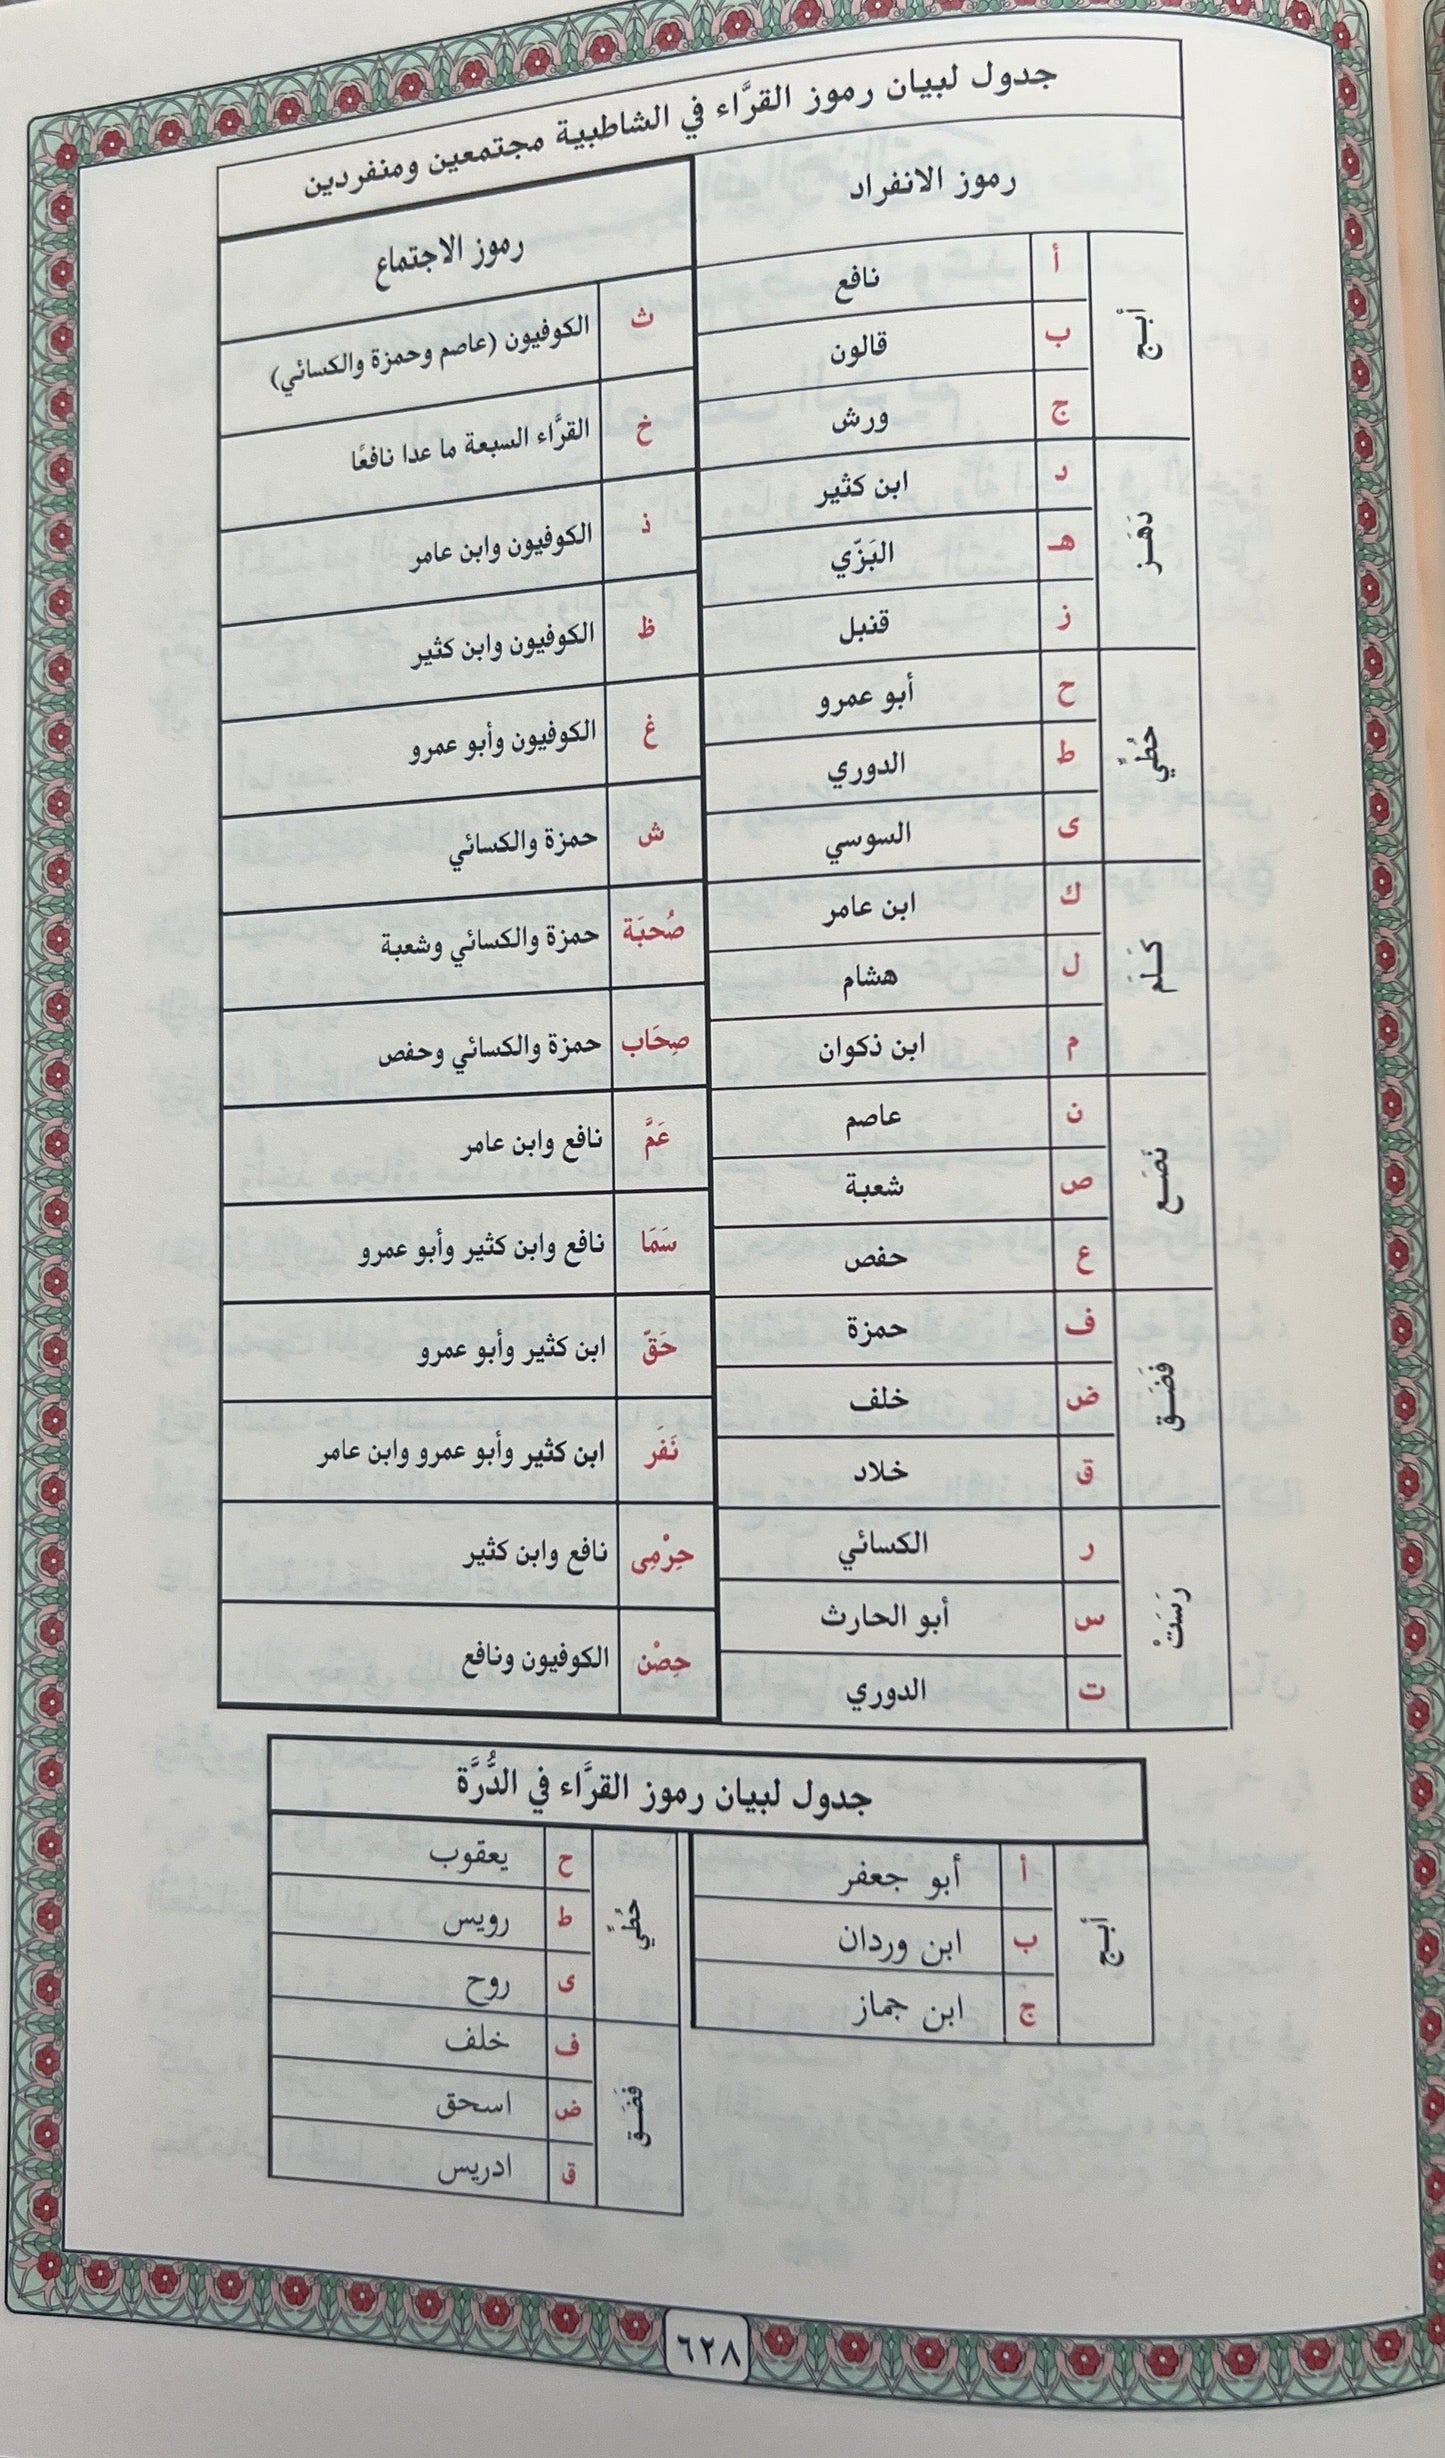 جدول لبيان رموز القرَّاء في الشاطبية مجتمعين ومنفردين
رموز الانفراد
أبج
أ نافع
ب قالون
ج ورش
دَهَـز
د ابن كثير
هـ البَزّي
ز قنبل
حُطِّي
ح أبو عمرو
ط الدوري
ى السوسي
كَـلَمَ
ك ابن عامر
ل هشام
م ابن ذكوان
نَصَـع
ن عاصم
ص شعبة
ع حفص
فَضَـق
ف حمزة
ض خلف
ق خلاد
رَسَتْ
ر الكسائي
س أبو الحارث
ت الدوري
رموز الاجتماع
ث الكوفيون (عاصم وحمزة والكسائي)
خ القرَّاء السبعة ما عدا نافعًا
ذ الكوفيون وابن عامر
ظ الكوفيون وابن كثير
غ الكوفيون وأبو عمرو
ش حمزة والكسائي
صُحبَة حمزة والكسائي وشعبة
صِحَاب حمزة والكسائي وحفص
عَمَّ نافع وابن عامر
سَمَا نافع وابن كثير وأبو عمرو
حَقّ ابن كثير وأبو عمرو
نَفَر ابن كثير وأبو عمرو وابن عامر
حِرْمِى نافع وابن كثير
حِصْن الكوفيون ونافع
جدول لبيان رموز القرَّاء في الدُّرَّة
أبج
أ أبو جعفر
ب ابن وردان
ج ابن جماز
حُطِّي
ح يعقوب
ط رويس
ى روح
فَضَـق
ف خلف
ض اسحق
ق ادريس
٦٢٨